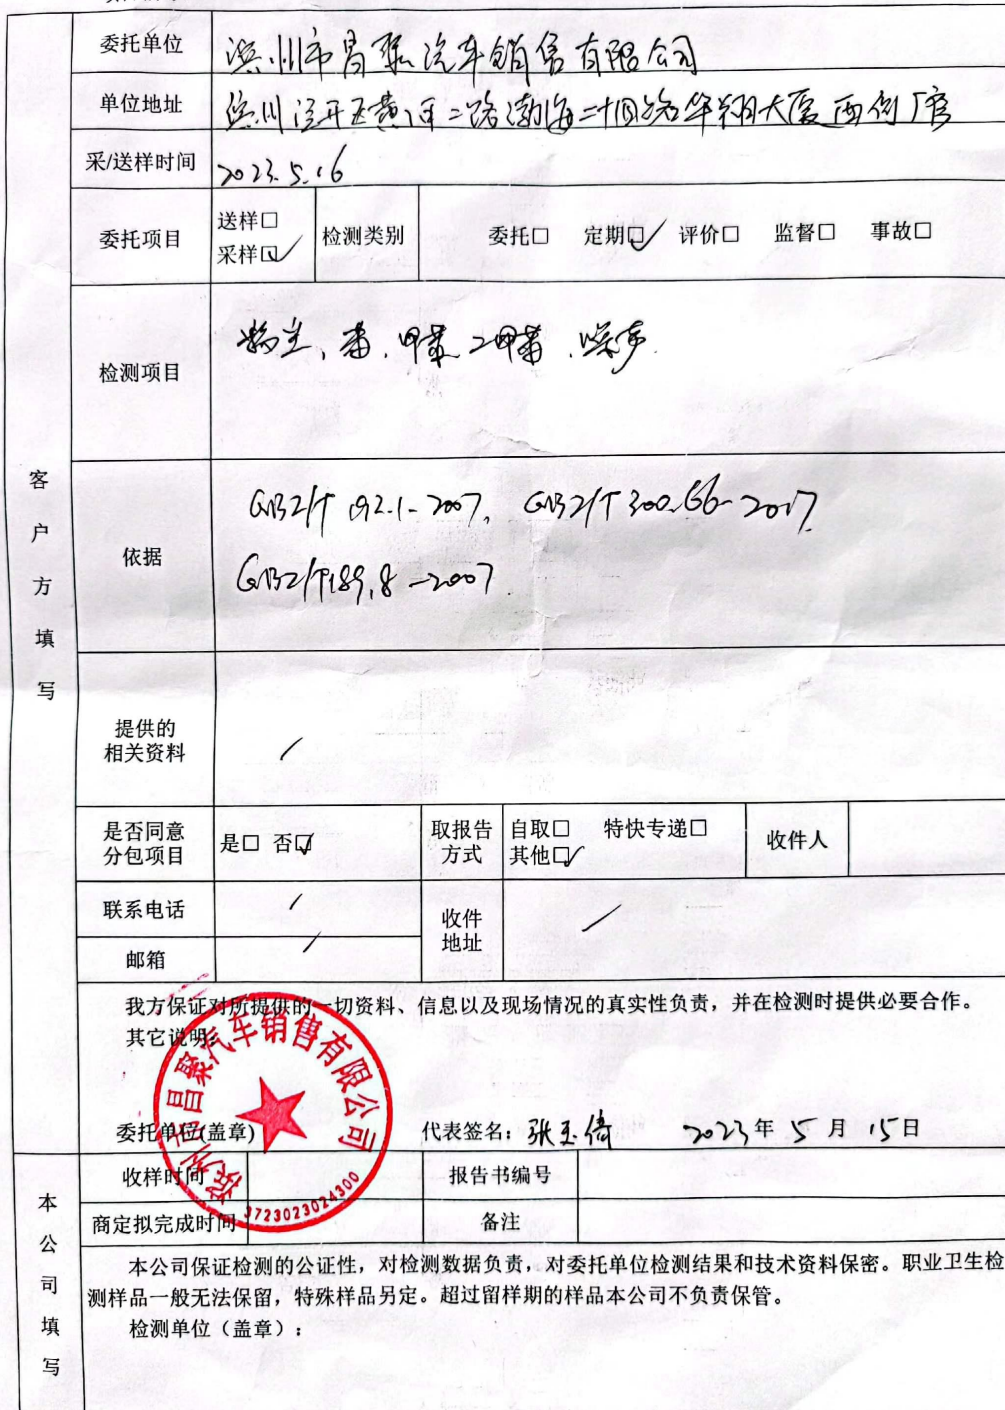 委托单位 滨州市昌聚汽车销售有限公司
单位地址 滨州经开区黄河二路渤海二十四路华翔大厦西侧厂房
采/送样时间 2023.5.16
委托项目 送样□ 采样☑ 检测类别 委托□ 定期☑ 评价□ 监督□ 事故□
检测项目 粉尘、苯、甲苯、二甲苯、噪声
客户方填写
依据 GBZ/T 192.1-2007, GBZ/T 300.66-2017
GBZ/T189.8-2007
提供的
相关资料 /
是否同意
分包项目 是□ 否☑ 取报告
方式 自取□ 特快专递□
其他☑ 收件人
联系电话 / 收件
地址 /
邮箱 /
我方保证对所提供的一切资料、信息以及现场情况的真实性负责，并在检测时提供必要合作。
其它说明：
委托单位(盖章) 代表签名：张玉倚 2023年5月15日
滨州市昌聚汽车销售有限公司
3723023024300
收样时间 报告书编号
商定拟完成时间 备注
本公司填写
本公司保证检测的公证性，对检测数据负责，对委托单位检测结果和技术资料保密。职业卫生检
测样品一般无法保留，特殊样品另定。超过留样期的样品本公司不负责保管。
检测单位（盖章）：